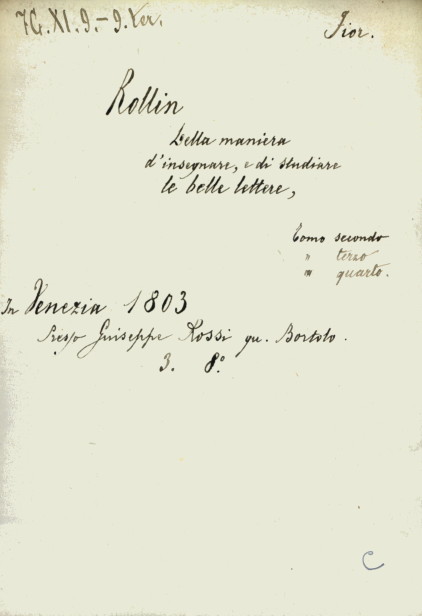 7G.XI.9.-9.Ter. Fior.
Rollin
Della maniera
d'insegnare, e di studiare
le belle lettere,
Tomo secondo
" terzo
" quarto.
In Venezia 1803
Presso Giuseppe Rossi qu. Bortolo.
3. 8.°
C